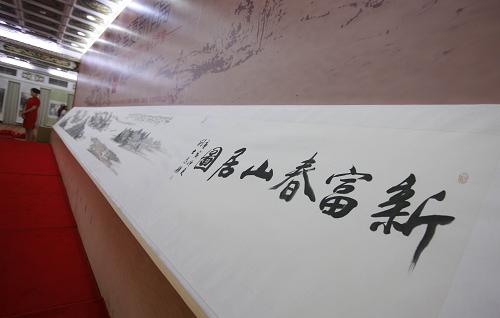 新富春山居圖